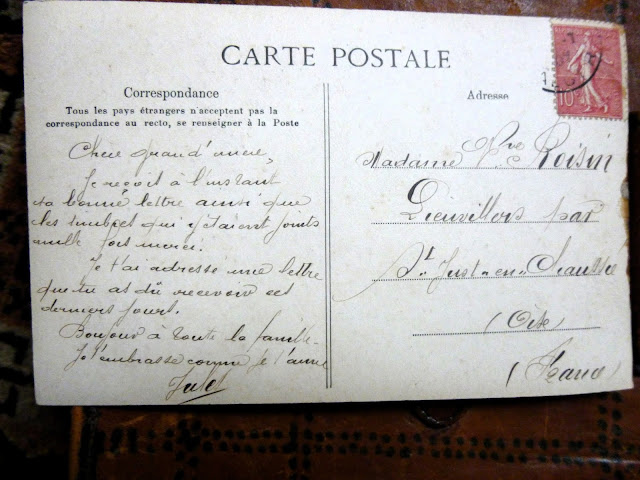 CARTE POSTALE
Correspondance
Tous les pays étrangers n'acceptent pas la
correspondance au recto, se renseigner à la Poste
Chère grand'mère,
Je reçoit à l'instant
ta bonne lettre ainsi que
les timbres qui y étaient joints
mille fois merci.
Je t'ai adressé une lettre
que tu as dû recevoir ces
derniers jours.
Bonjour à toute la famille.
Je t'embrasse comme je t'aime
Jules
Adresse
Madame Vve Roisin
Lieuvillers par
St Just-en-Chaussée
(Oise)
(France)
10